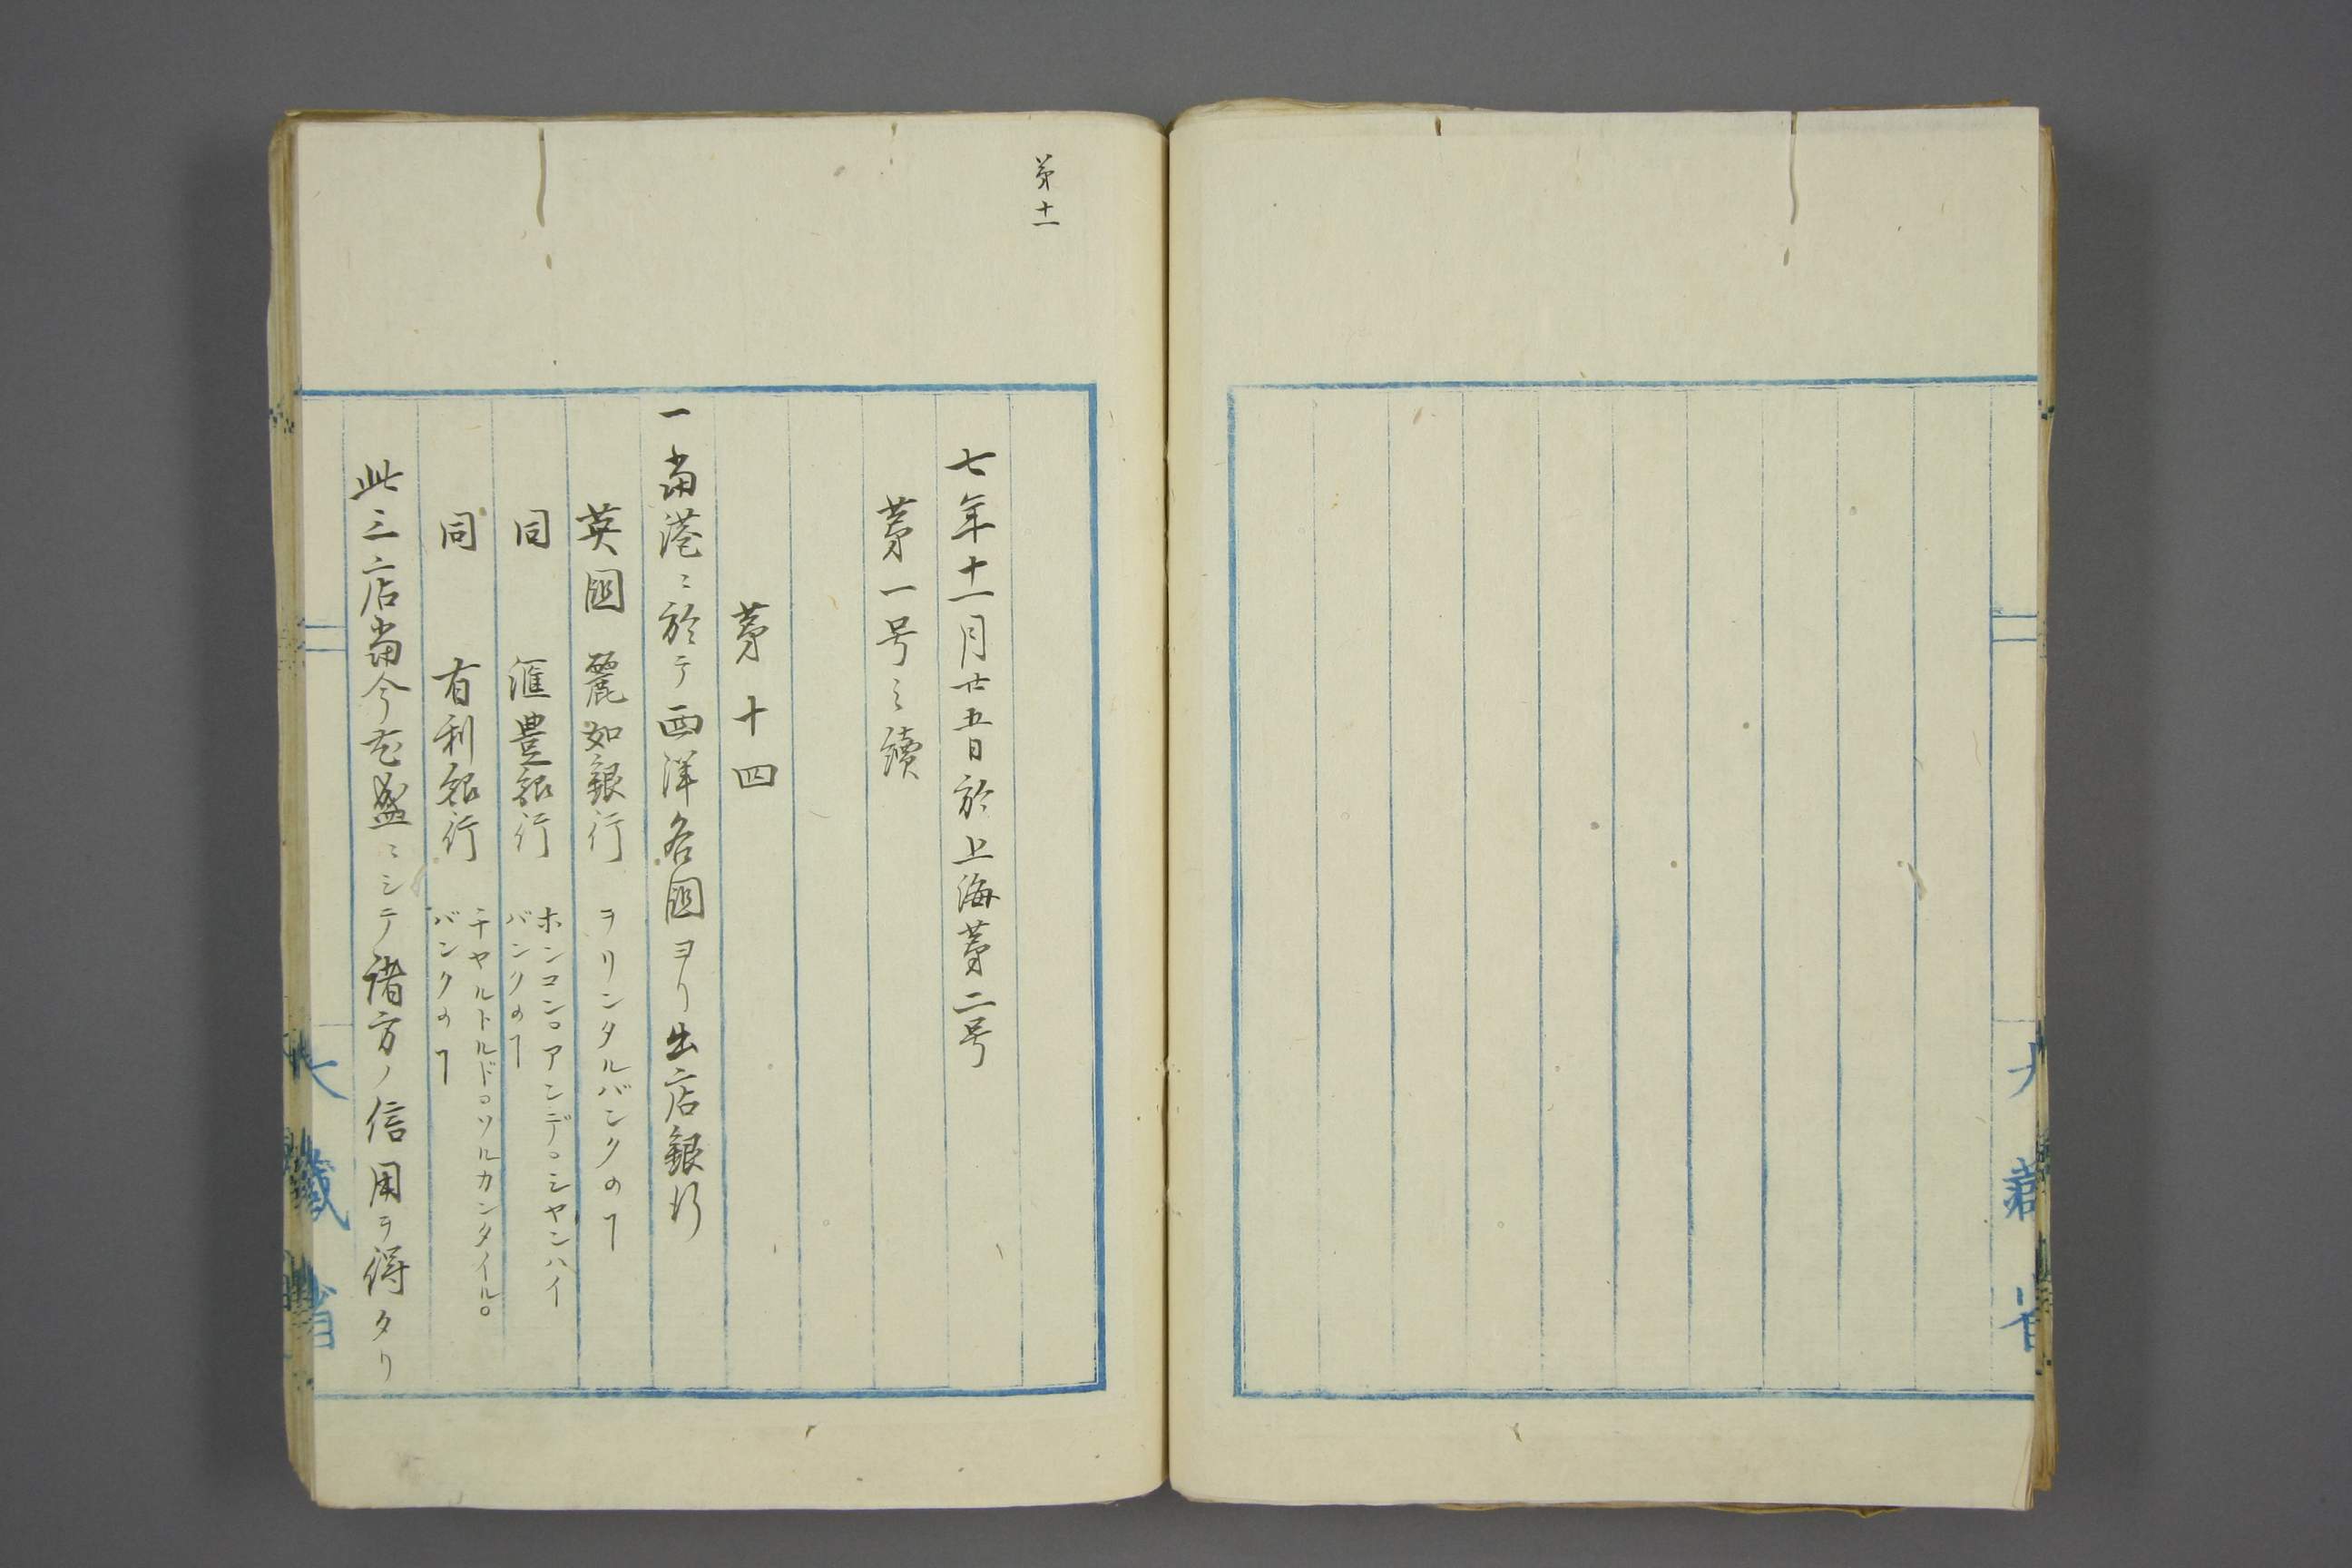 大藏省
第十一
七年十一月廿五日於上海第二号
第一号之續
第十四
一當港ニ於テ西洋各國ヨリ出店銀行
英國 麗如銀行 ヲリンタルバンクのヿ
同 滙豊銀行 ホンコン。アンデ。シヤンハイ
バンクのヿ
同 有利銀行 チヤルトルド。ソルカンタイル。
バンクのヿ
此三店當今尤盛ニシテ諸方ノ信用ヲ得タリ
大藏省